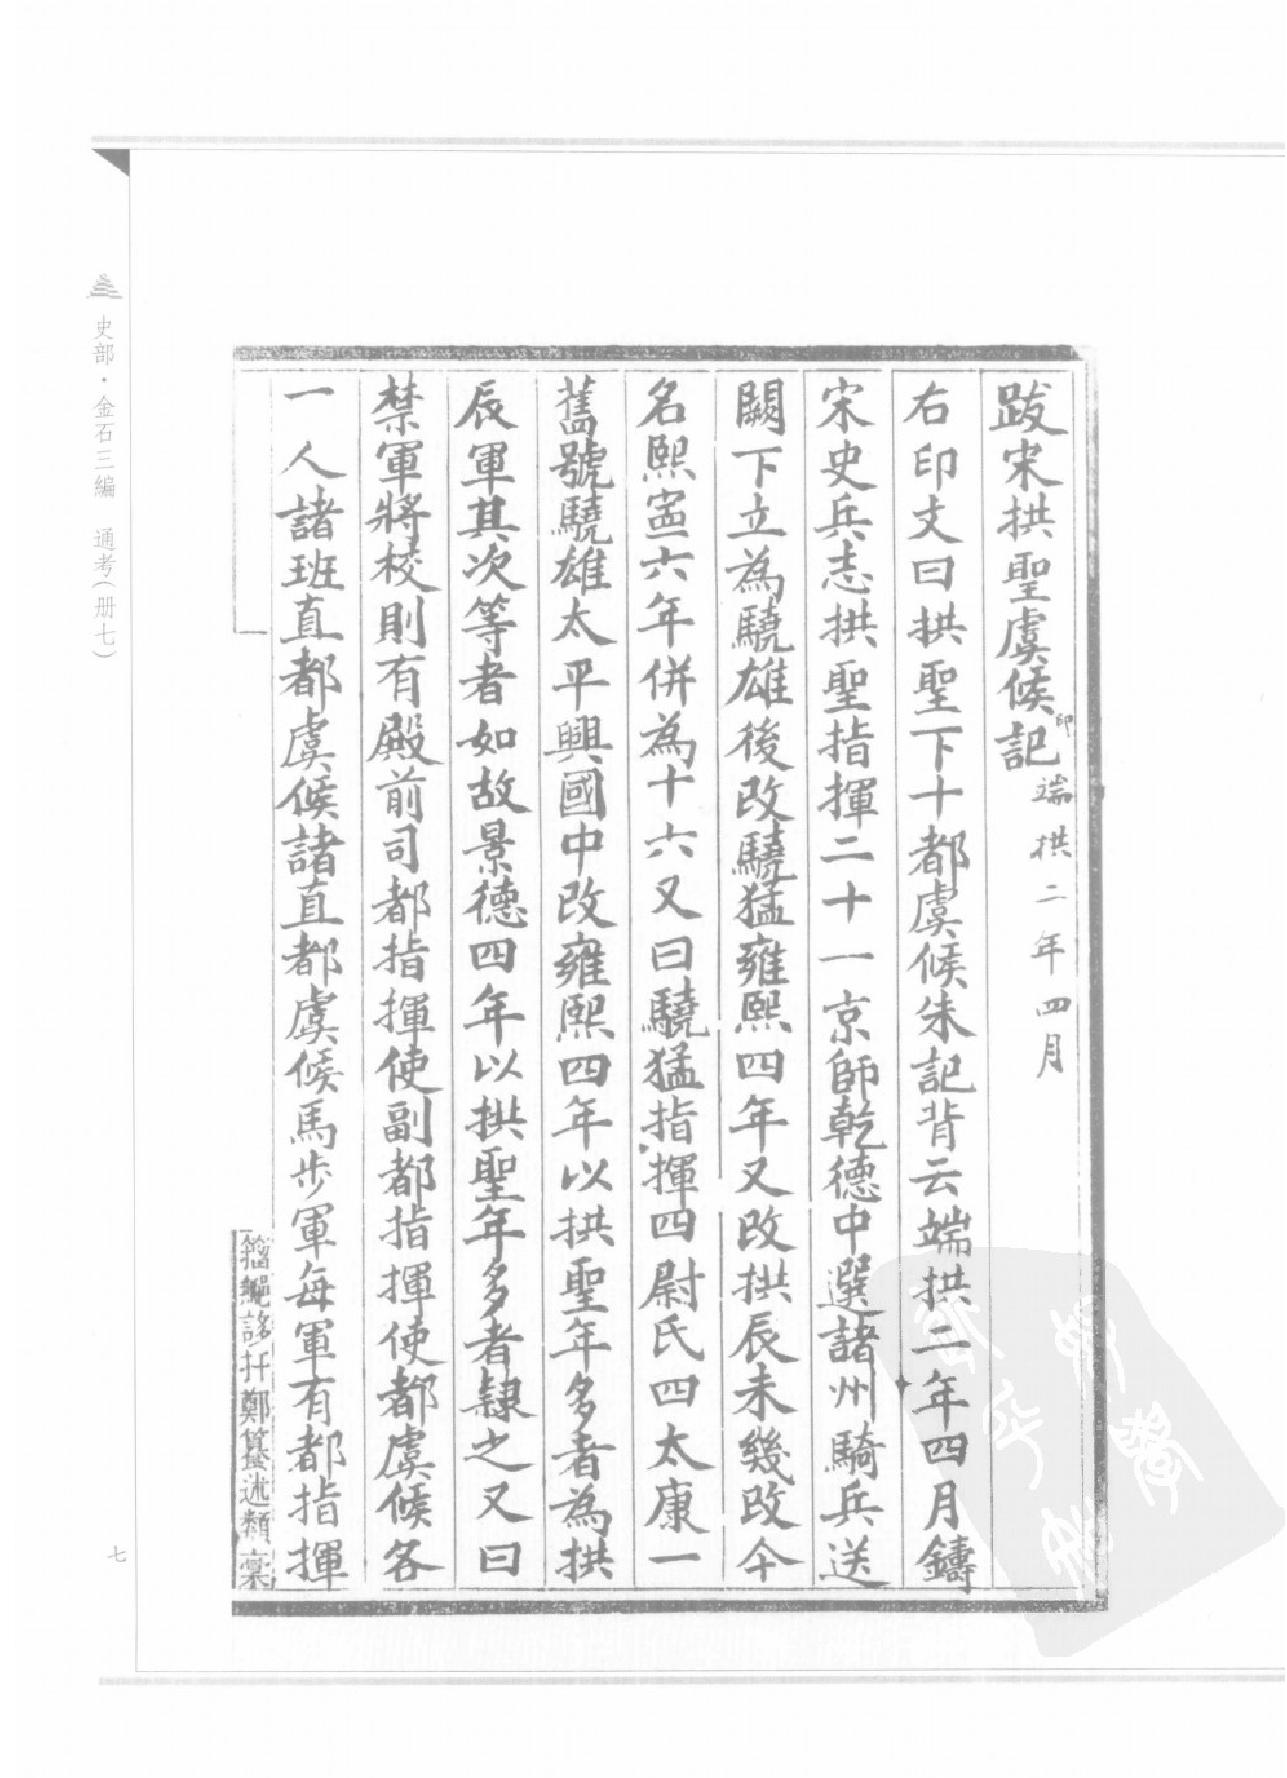 跋宋拱聖虞候印記 端拱二年四月
右印文曰拱聖下十都虞候朱記背云端拱二年四月鑄
宋史兵志拱聖指揮二十一京師乾德中選諸州騎兵送
闕下立為驍雄後改驍猛雍熙四年又改拱辰未幾改今
名熙寍六年併為十六又曰驍猛指揮四尉氏四太康一
舊號驍雄太平興國中改雍熙四年以拱聖年多者為拱
辰軍其次等者如故景德四年以拱聖年多者隸之又曰
禁軍將校則有殿前司都指揮使副都指揮使都虞候各
一人諸班直都虞候諸直都虞候馬步軍每軍有都指揮
鄭簋述類稾
史部·金石三編 通考(册七)
七